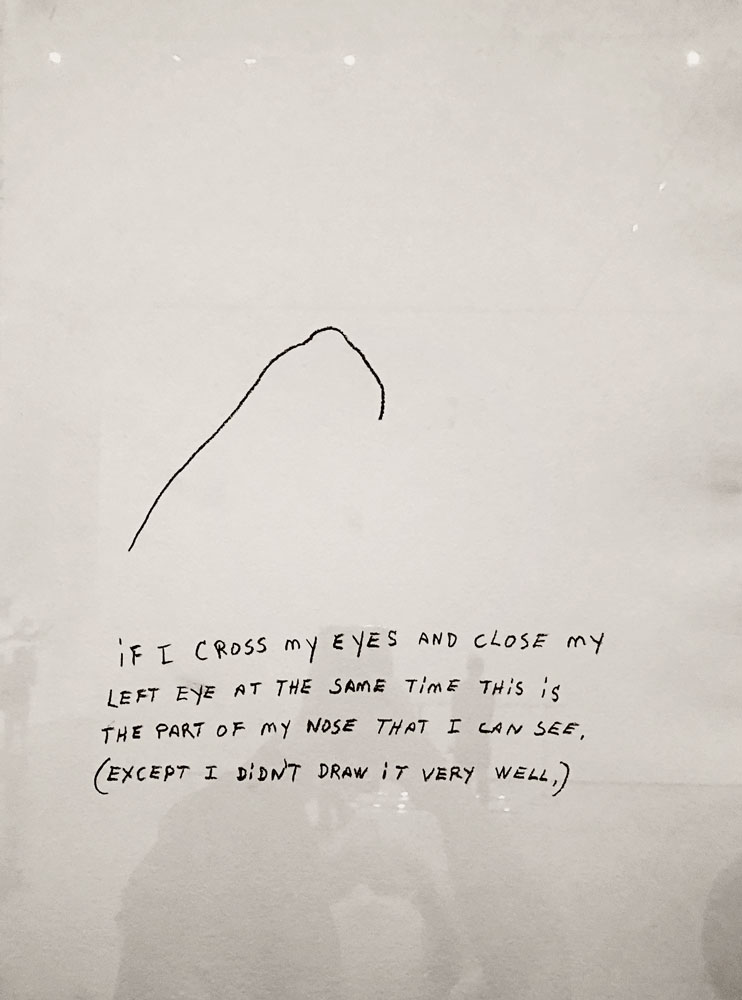 iF I CROSS my EYES AND CLOSE my
LEFT EYE AT THE SAME TiME THiS iS
THE PART OF MY NOSE THAT I CAN SEE.
(EXCEPT I DiDN'T DRAW iT VERY WELL.)